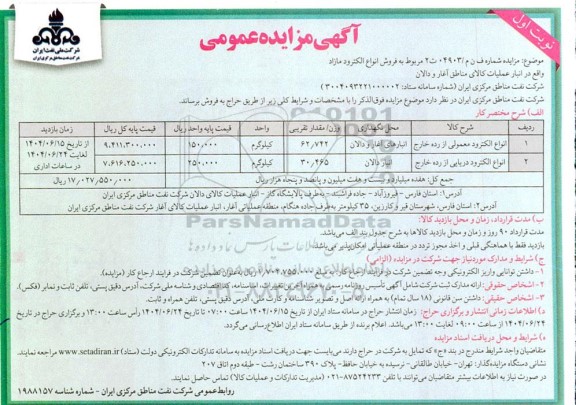 نوبت اول
آگهی مزایده عمومی
شرکت ملی نفت ایران
شرکت نفت مناطق مرکزی ایران
موضوع: مزایده شماره ف ن م /۰۴۹۰۳ ت۲ مربوط به فروش انواع الکترود مازاد
واقع در انبار عملیات کالای مناطق آغار و دالان
شرکت نفت مناطق مرکزی ایران (شماره سامانه ستاد: ۳۰۰۴۰۹۳۲۲۱۰۰۰۰۰۲)
شرکت نفت مناطق مرکزی ایران در نظر دارد موضوع مزایده فوق الذکر را با مشخصات و شرایط کلی زیر از طریق حراج به فروش برساند.
الف) شرح مختصر کار
ردیف شرح کالا محل نگهداری وزن/مقدار تقریبی واحد قیمت پایه واحد ریال قیمت پایه کل ریال زمان بازدید
۱ انواع الکترود معمولی از رده خارج انبارهای آغار و دالان ۶۲,۷۴۲ کیلوگرم ۱۵۰,۰۰۰ ۹,۴۱۱,۳۰۰,۰۰۰ از تاریخ ۱۴۰۴/۰۶/۱۵ لغایت ۱۴۰۴/۰۶/۲۴ در ساعات اداری
۲ انواع الکترود دریایی از رده خارج انبار دالان ۳۰,۴۶۵ کیلوگرم ۲۵۰,۰۰۰ ۷,۶۱۶,۲۵۰,۰۰۰
جمع کل: هفده میلیارد و بیست و هفت میلیون و پانصد و پنجاه هزار ریال ۱۷,۰۲۷,۵۵۰,۰۰۰ ریال
آدرس۱: استان فارس - فیروزآباد - جاده فراشبند - به طرف پالایشگاه گاز - انبار عملیات کالای دالان شرکت نفت مناطق مرکزی ایران
آدرس۲: استان فارس، شهرستان قیر و کارزین، ۳۵ کیلومتر به طرف جاده هنگام، منطقه عملیاتی آغار، انبار عملیات کالای آغار شرکت نفت مناطق مرکزی ایران
ب) مدت قرارداد، زمان و محل بازدید کالاها:
مدت قرارداد ۹۰ روز و زمان و محل بازدید کالاها به شرح جدول بند الف می‌باشد.
بازدید فقط با هماهنگی قبلی و اخذ مجوز تردد در منطقه عملیاتی امکان‌پذیر می‌باشد.
ج) شرایط و مدارک موردنیاز جهت شرکت در مزایده (الزامی)
۱- داشتن توانایی واریز الکترونیکی وجه تضمین شرکت در فرآیند ارجاع کار به مبلغ ریال به عنوان تضمین شرکت در فرآیند ارجاع کار (مزایده).
۲- اشخاص حقوقی: ارائه مدارک ثبت شرکت شامل آگهی تأسیس روزنامه رسمی به همراه آخرین تغییرات، اساسنامه، کد اقتصادی و شناسه ملی شرکت، آدرس دقیق پستی، تلفن ثابت و نمابر (فکس).
۳- اشخاص حقیقی: داشتن سن قانونی (۱۸ سال تمام) به همراه ارائه اصل و تصویر شناسنامه و کارت ملی، آدرس دقیق پستی، تلفن همراه و ثابت.
د) اطلاعات زمانی انتشار و برگزاری حراج: زمان انتشار حراج در سامانه ستاد از تاریخ ۱۴۰۴/۰۶/۱۵ ساعت ۰۷:۰۰ تا تاریخ ۱۴۰۴/۰۶/۲۴ رأس ساعت ۰۸:۰۰ و برگزاری حراج در تاریخ
۱۴۰۴/۰۶/۲۴ از ساعت ۰۹:۰۰ لغایت ۱۳:۰۰ می‌باشد. اعلام برنده از طریق سامانه ستاد ایران اطلاع‌رسانی می‌گردد.
ه) شرایط و محل دریافت اسناد مزایده
متقاضیان واجد شرایط مندرج در بند «ج» که تمایل به شرکت در حراج دارند می‌بایست جهت دریافت اسناد مزایده به سامانه تدارکات الکترونیکی دولت (ستاد) www.setadiran.ir مراجعه نمایند.
نشانی دستگاه مزایده‌گذار: تهران- خیابان طالقانی- نرسیده به خیابان حافظ- پلاک ۳۹۰ ساختمان رشت - طبقه دوم اتاق ۲۰۷
در صورت نیاز به اطلاعات بیشتر متقاضیان می‌توانند با تلفن ۸۷۵۲۴۲۳۳-۰۲۱ (مدیریت تدارکات و عملیات کالا) تماس حاصل نمایند.
روابط عمومی شرکت نفت مناطق مرکزی ایران - شماره شناسه ۱۹۸۸۱۵۷
ParsNamadData